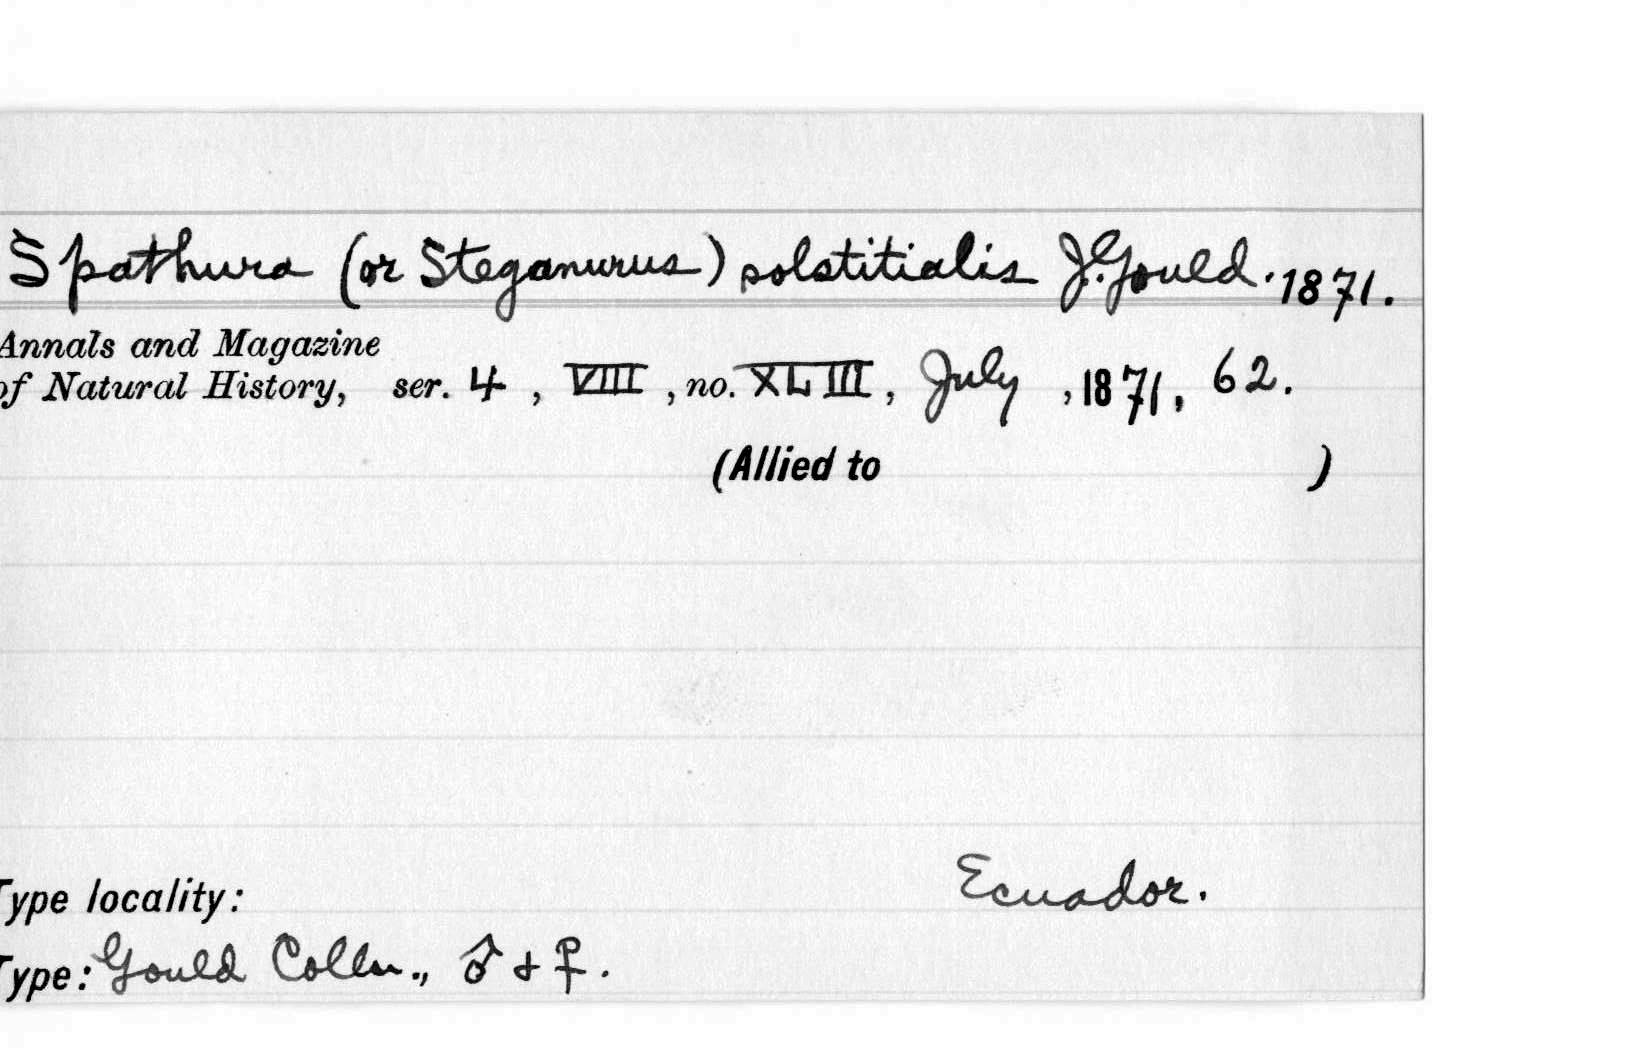 Spathura (or Steganurus) solstitialis J. Gould. 1871.
Annals and Magazine
of Natural History, ser. 4, VIII, no. XLIII, July, 1871, 62.
(Allied to )
Type locality: Ecuador.
Type: Gould Colln., ♂ & ♀.